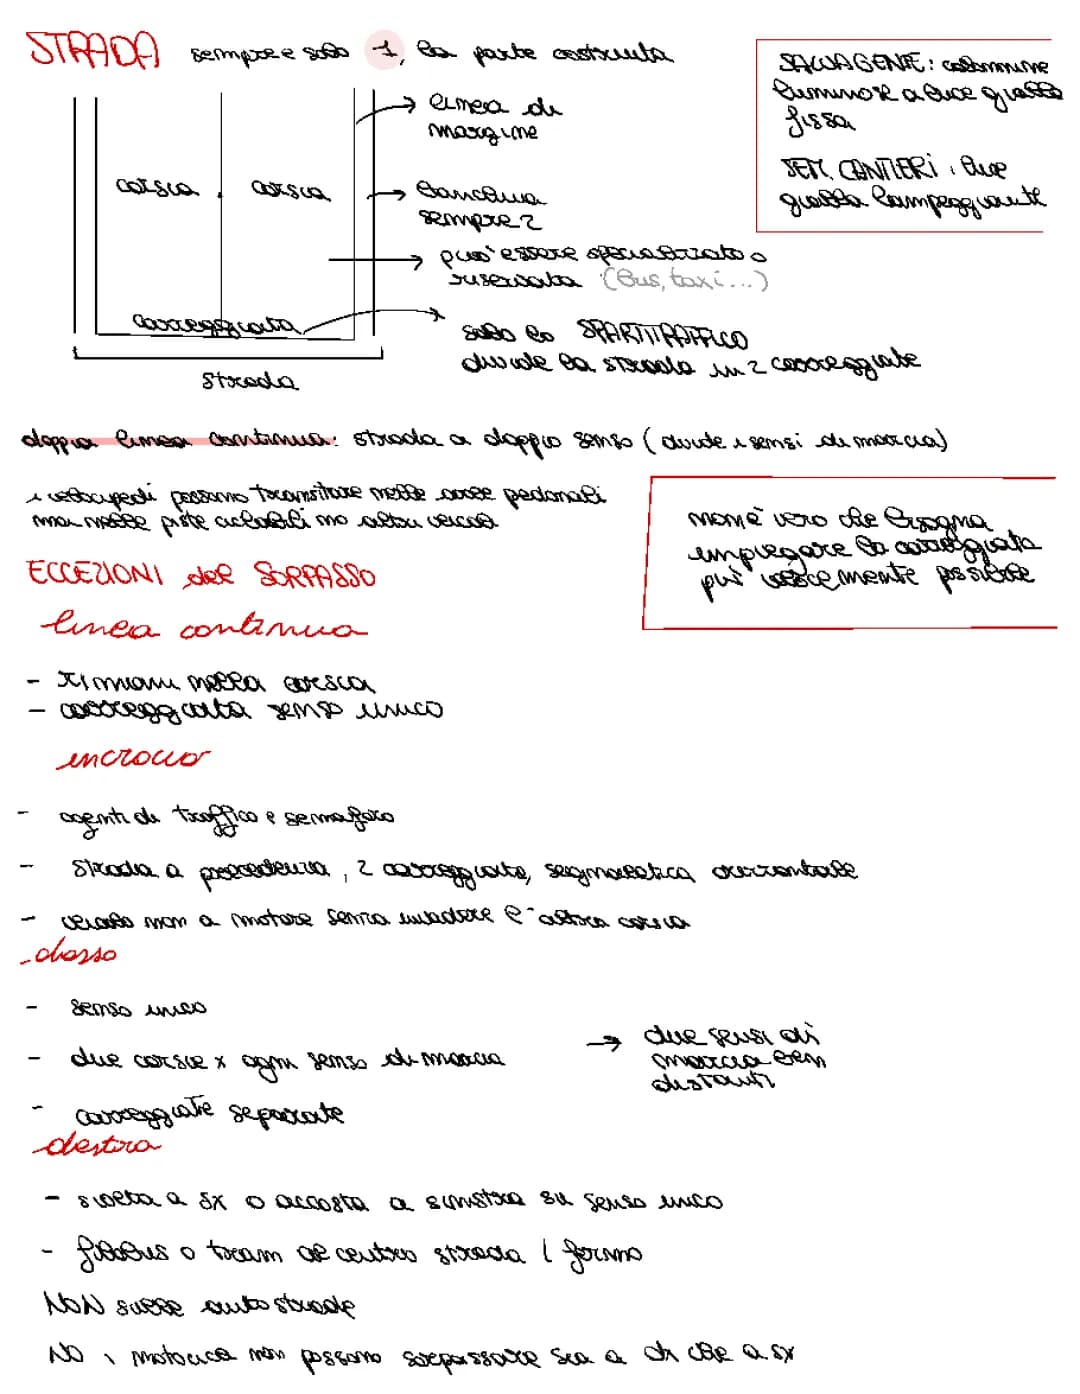 STRADA sempre e solo 1, la parte costruita
SALVAGENTE: colonnine
luminose a luce gialla
fissa
SEM. CANTIERI: luce
gialla lampeggiante
linea di
margine
corsia corsia
banchina
sempre 2
può essere specializzato o
riservata (bus, taxi...)
carreggiata
solo lo SPARTITRAFFICO
divide la strada in 2 carreggiate
strada
doppia linea continua: strada a doppio senso (divide i sensi di marcia)
i velocipedi possono transitare nelle aree pedonali
ma nelle piste ciclabili no altri veicoli
non è vero che bisogna
impiegare la carreggiata
più velocemente possibile
ECCEZIONI del SORPASSO
linea continua
- rimani nella corsia
- carreggiata senso unico
incrocio
- agenti di traffico e semaforo
- strada a precedenza, 2 carreggiate, segnaletica orizzontale
- veicolo non a motore senza invadere l'altra corsia
dosso
- senso unico
- due corsie x ogni senso di marcia
→ due sensi di
marcia ben
distanti
- carreggiate separate
destra
- svolta a sx o accosta a sinistra su senso unico
- filobus o tram al centro strada / fermo
NON sulle autostrade
NO i motocicli non possono sorpassare sia a dx che a sx